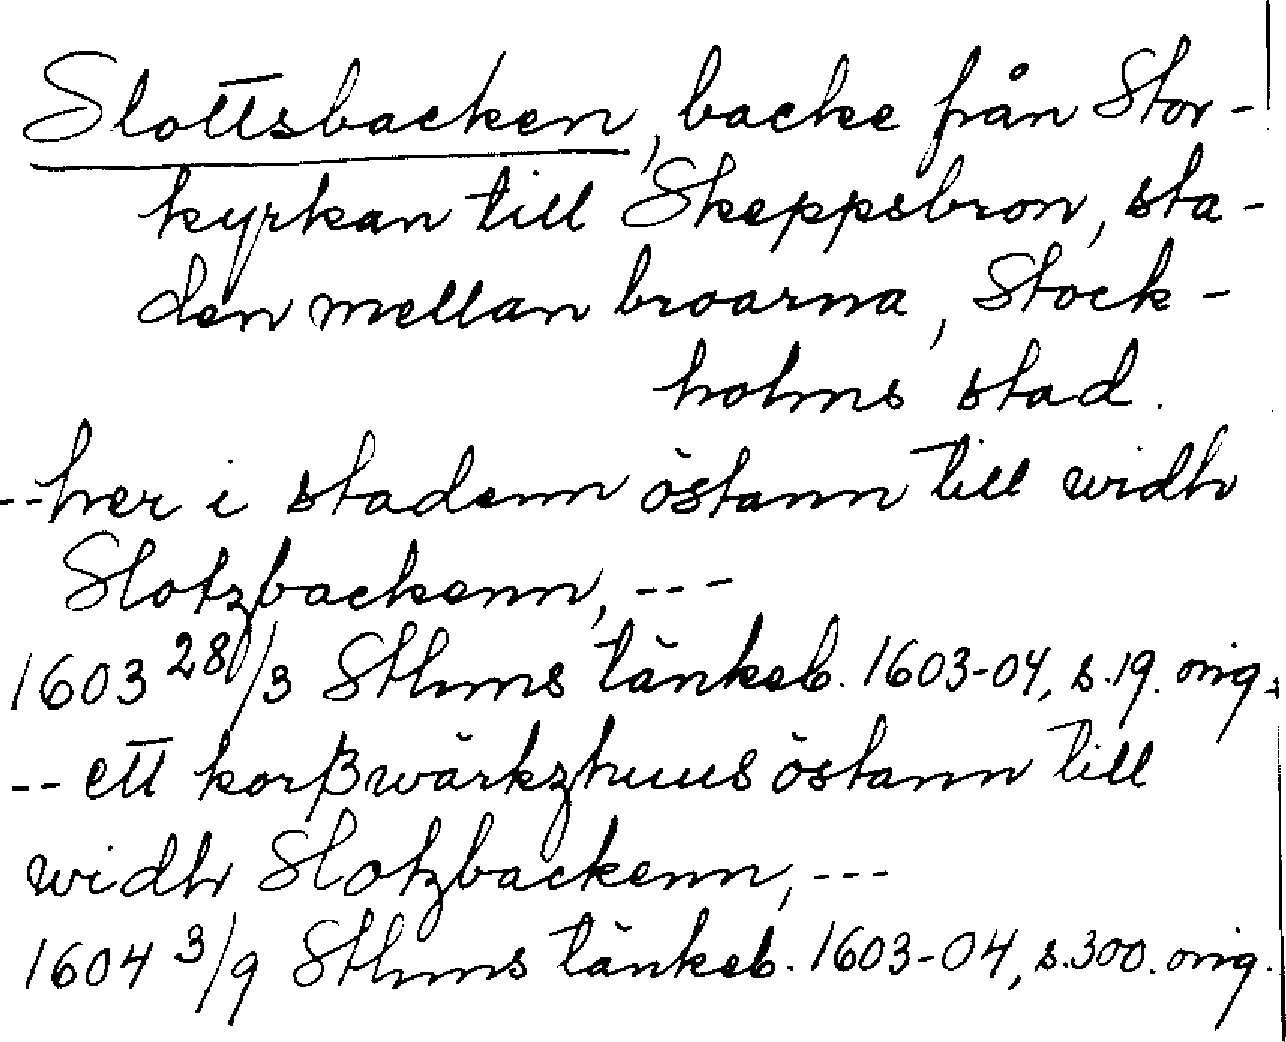 Slottsbacken, backe från Stor-
kyrkan till Skeppsbron, sta-
den mellan broarna, Stock-
holms stad.
-- her i stadenn östann till widh
Slotzbackenn, ---
1603 28/3 Sthms tänkeb. 1603-04, s.19. orig.
-- ett korßwärkzhuus östann till
widh Slotzbackenn, ---
1604 3/9 Sthms tänkeb. 1603-04, s.300. orig.